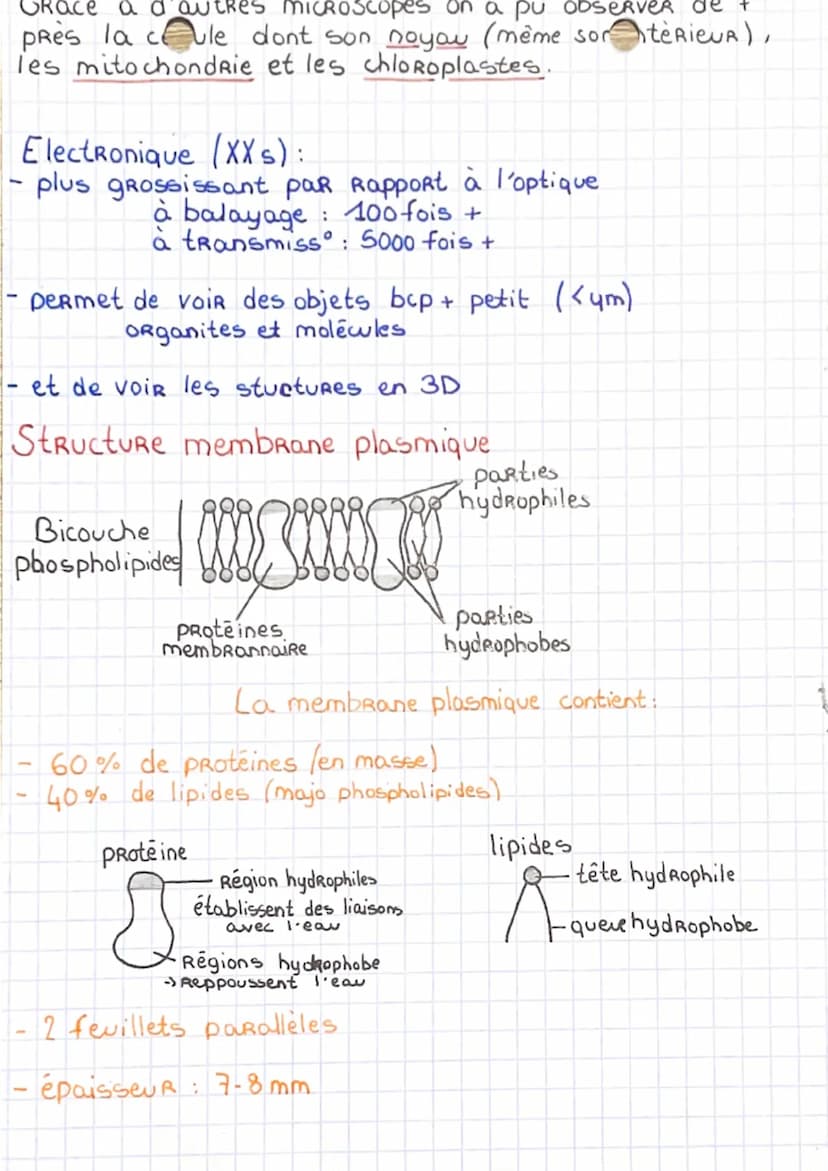 GRâce à d'autres microscopes on a pu observer de +
près la c ule dont son noyau (même son térieur),
les mitochondrie et les chloroplastes.
Electronique (XXs) :
- plus grossissant par rapport à l'optique
à balayage : 100 fois +
à transmiss° : 5000 fois +
- permet de voir des objets bcp + petit (<μm)
organites et molécules
- et de voir les stuctures en 3D
Structure membrane plasmique
parties
hydrophiles
Bicouche
phospholipides
protéines
membrannaire
parties
hydrophobes
La membrane plasmique contient :
- 60 % de protéines (en masse)
- 40 % de lipides (majo phospholipides)
protéine
Région hydrophiles
établissent des liaisons
avec l'eau
Régions hydrophobe
→ Reppoussent l'eau
lipides
tête hydrophile
queue hydrophobe
- 2 feuillets parallèles
- épaisseur : 7-8 mm